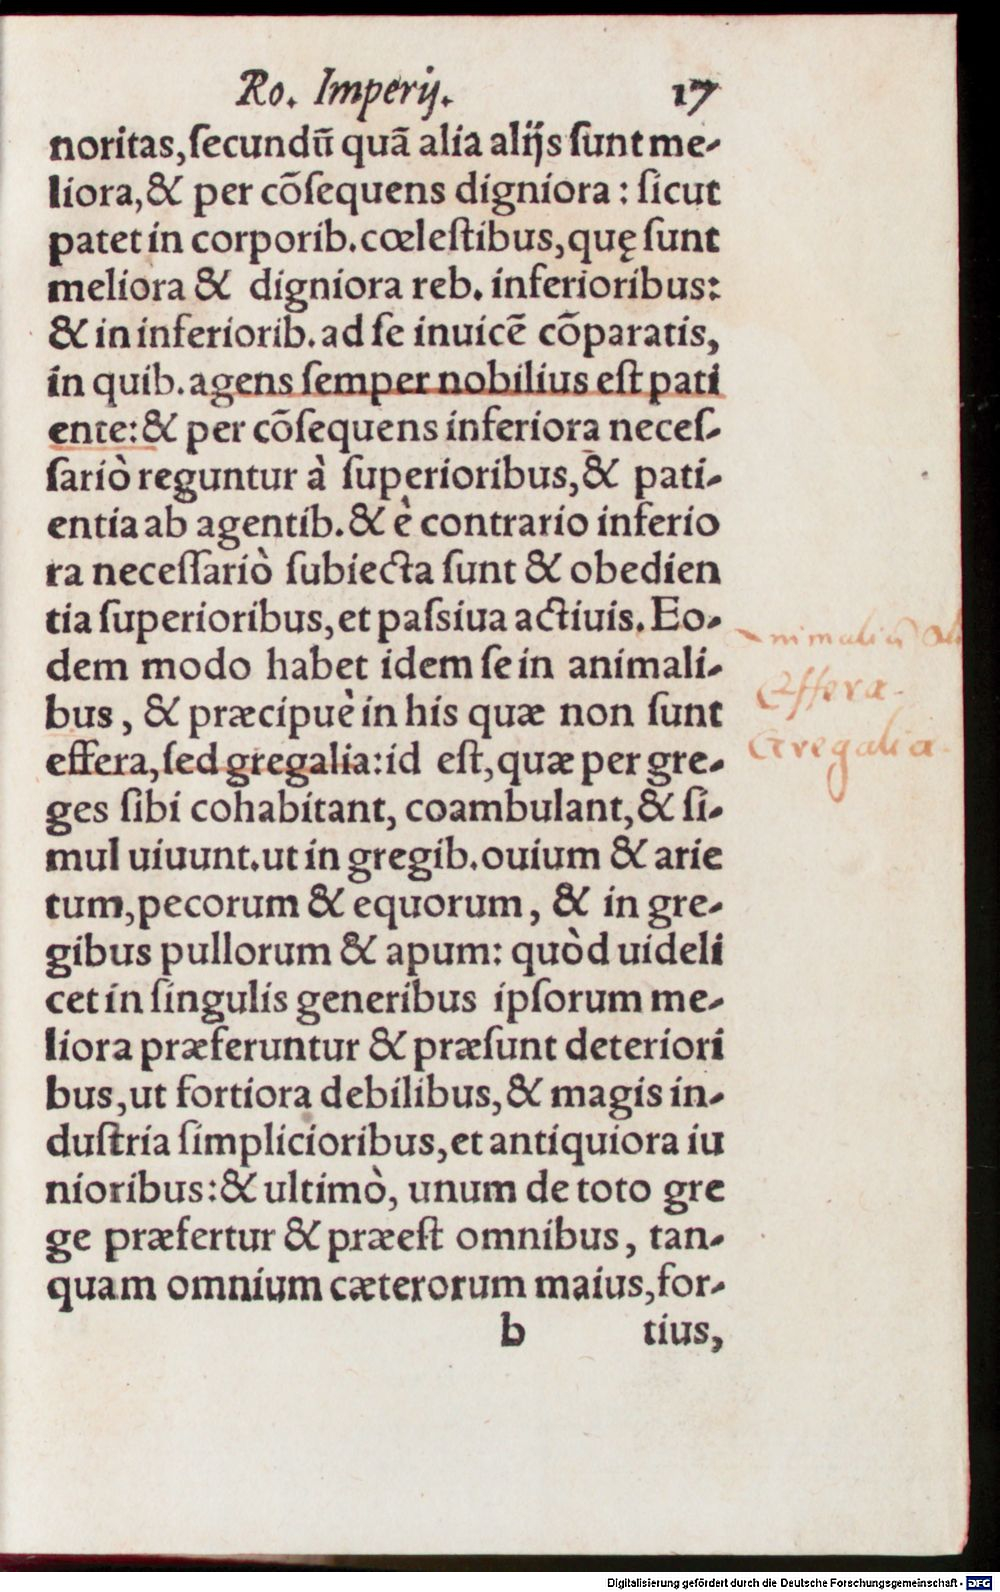 Ro. Imperij. 17
noritas, ſecundū quā alia alijs ſunt me-
liora, & per cōſequens digniora: ſicut
patet in corporib. cœleſtibus, quę ſunt
meliora & digniora reb. inferioribus:
& in inferiorib. ad ſe inuicē cōparatis,
in quib. agens ſemper nobilius eſt pati
ente: & per cōſequens inferiora neceſ-
ſariò reguntur à ſuperioribus, & pati-
entia ab agentib. & è contrario inferio
ra neceſſariò ſubiecta ſunt & obedien
tia ſuperioribus, et paſsiua actiuis. Eo-
dem modo habet idem ſe in animali-
bus, & præcipuè in his quæ non ſunt
effera, ſed gregalia: id eſt, quæ per gre-
ges ſibi cohabitant, coambulant, & ſi-
mul uiuunt. ut in gregib. ouium & arie
tum, pecorum & equorum, & in gre-
gibus pullorum & apum: quòd uideli
cet in ſingulis generibus ipſorum me-
liora præferuntur & præſunt deteriori
bus, ut fortiora debilibus, & magis in-
duſtria ſimplicioribus, et antiquiora iu
nioribus: & ultimò, unum de toto gre
ge præfertur & præeſt omnibus, tan-
quam omnium cæterorum maius, for-
b tius,
Animaliū
Effera.
Gregalia.
Digitalisierung gefördert durch die Deutsche Forschungsgemeinschaft - DFG